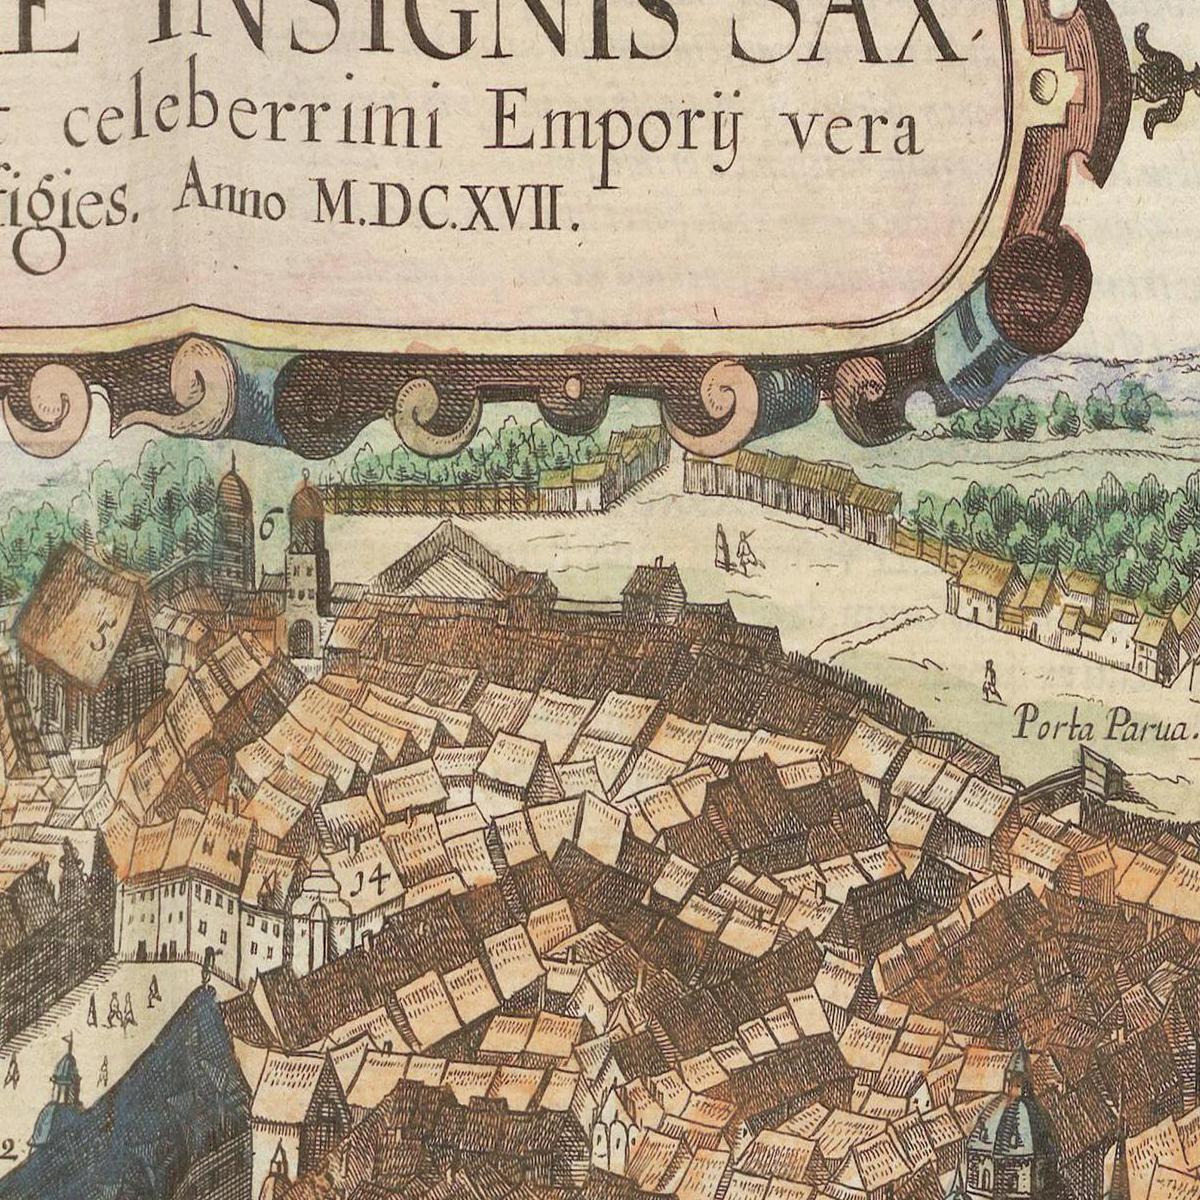 E INSIGNIS SAX
celeberrimi Emporij vera
figies. Anno M.DC.XVII.
6
5
Porta Parua.
14
2